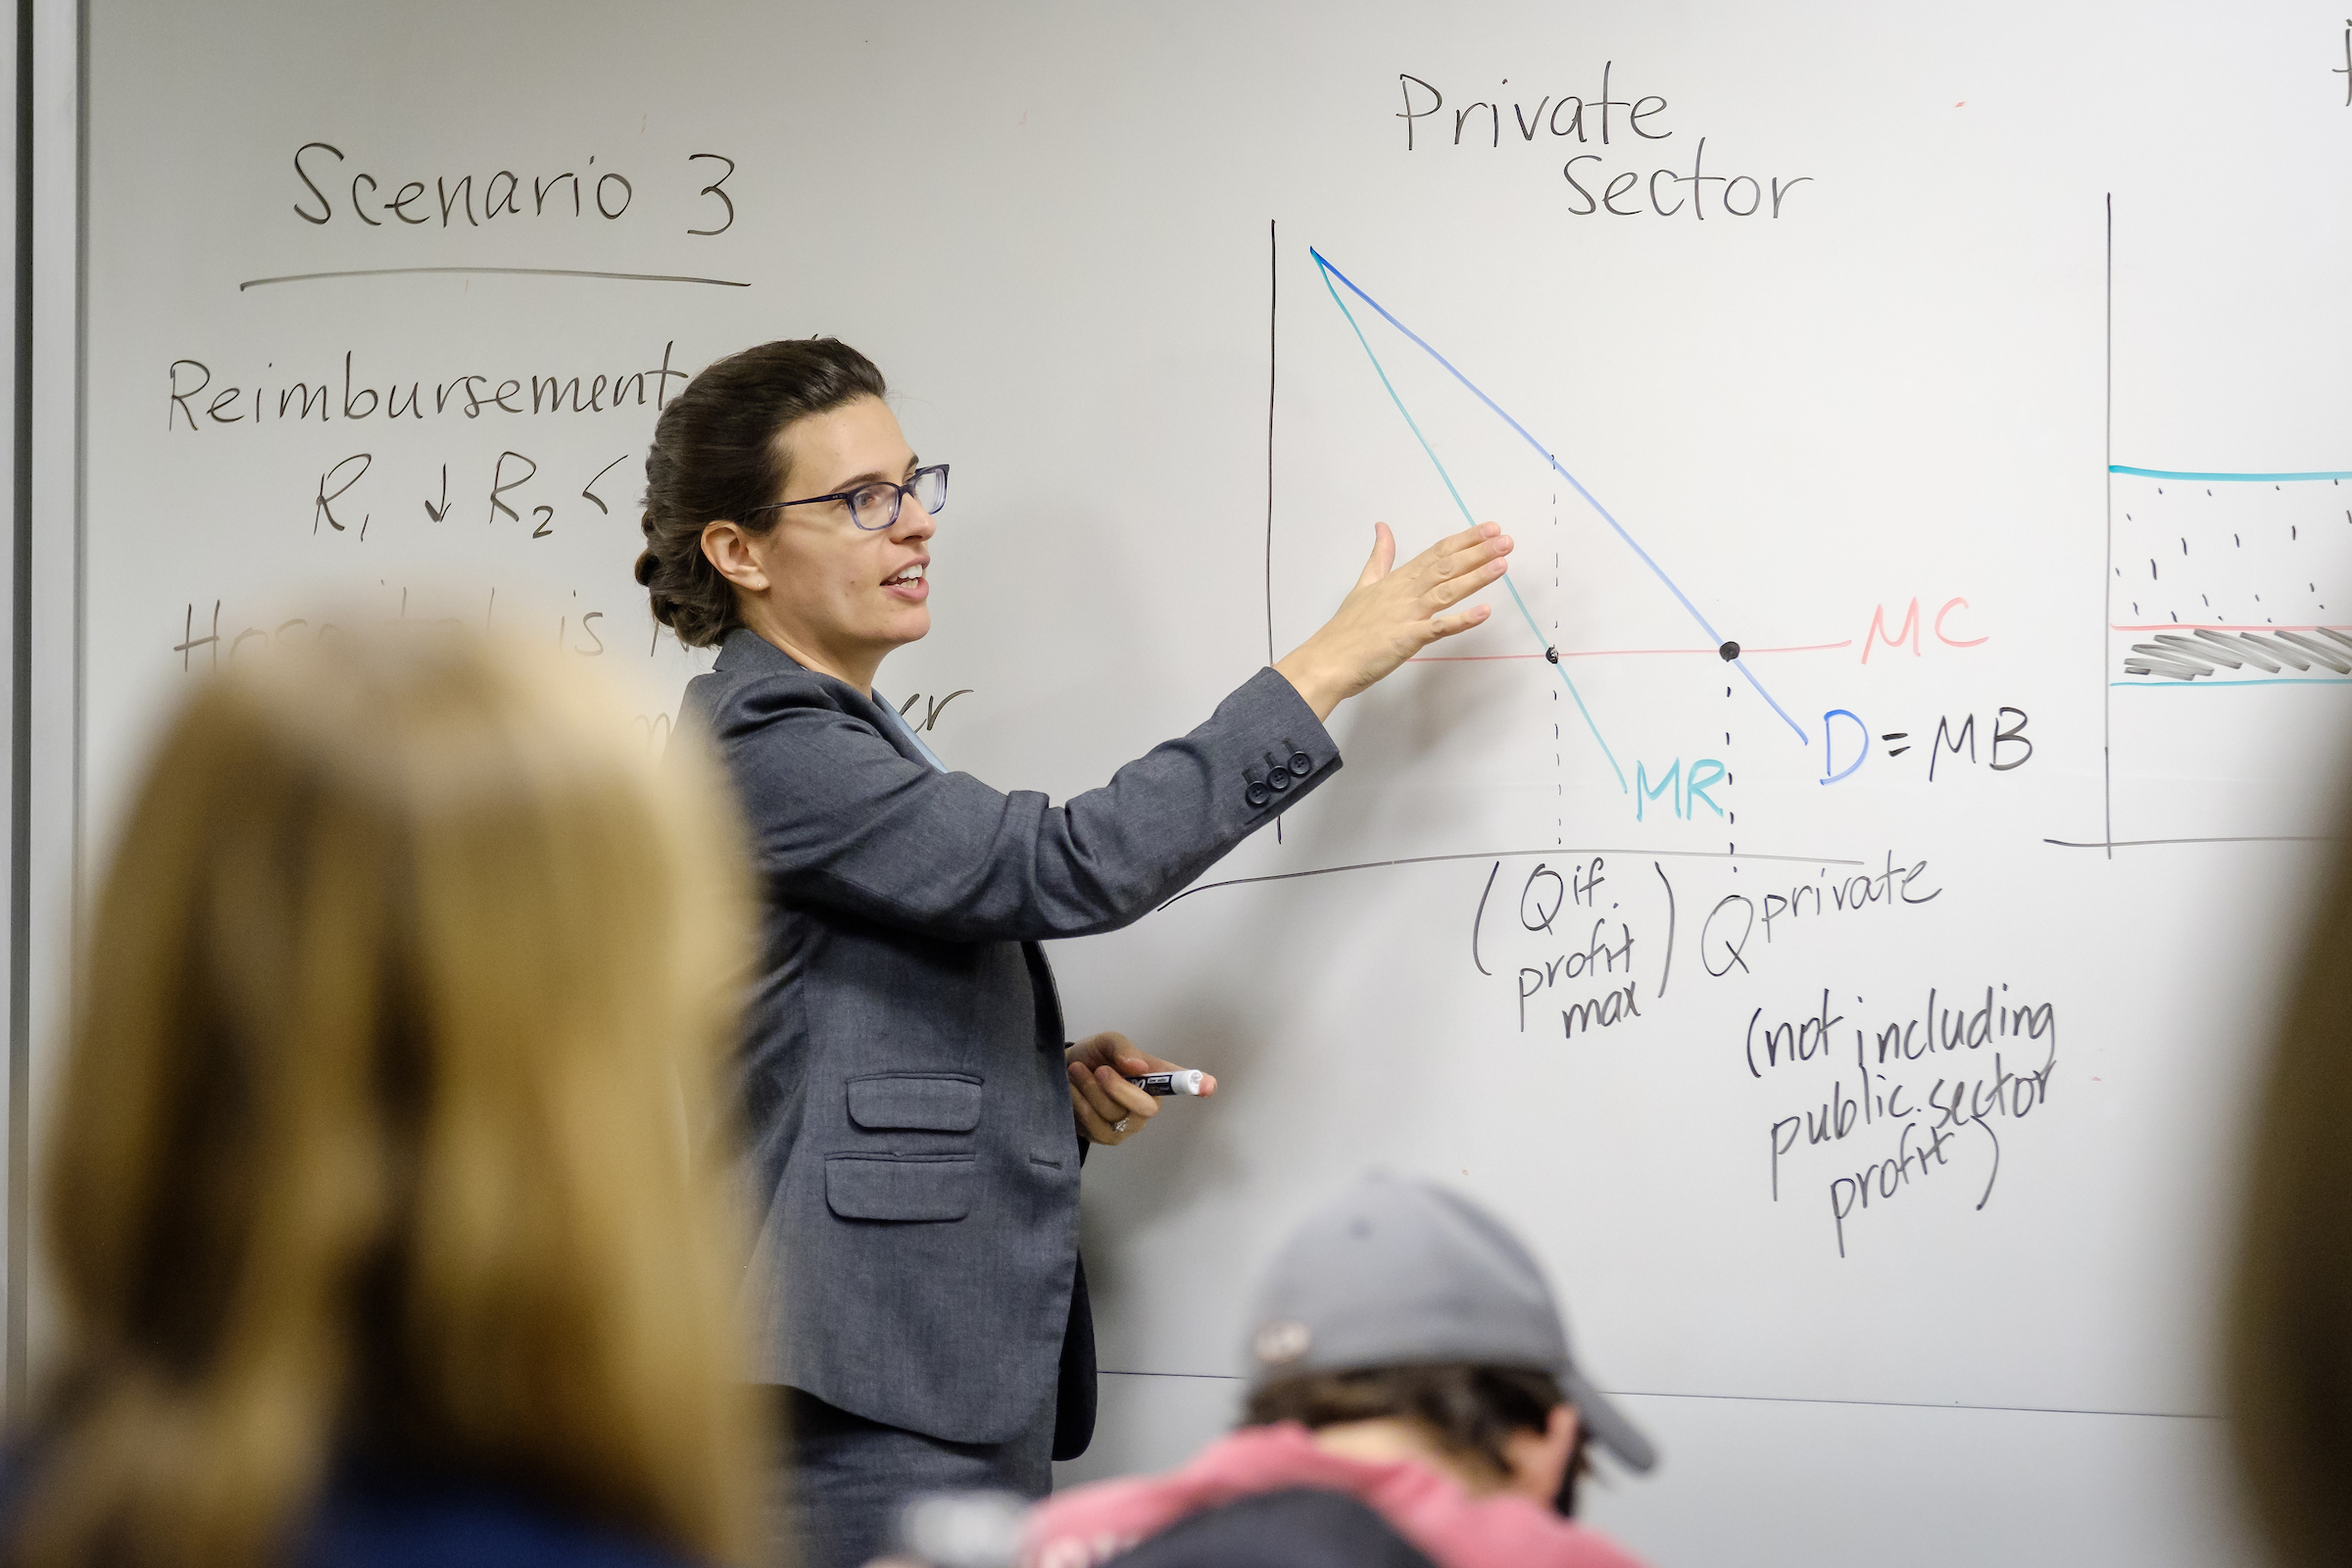 Scenario 3
Reimbursement
R₁ ↓ R₂ <
Hospital is
Private
Sector
MC
D = MB
MR
(Q if
profit
max)
Q private
(not including
public sector
profit)